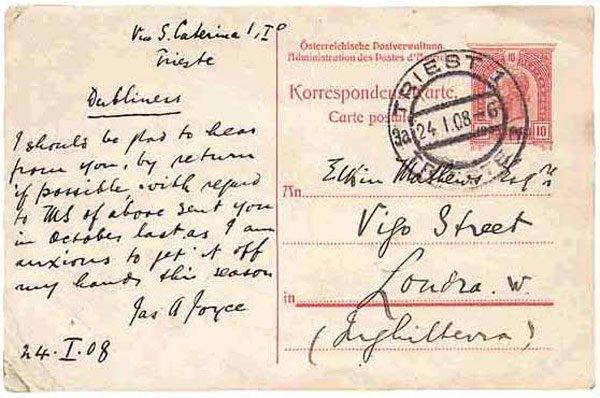 Via S. Caterina 1, I°
Trieste
Dubliners
I should be glad to hear
from you, by return
if possible, with regard
to MS of above sent you
in October last as I am
anxious to get it off
my hands this season
Jas A Joyce
24. I. 08
Österreichische Postverwaltung.
Administration des Postes d'Autriche.
Korrespondenzkarte.
Carte postale
10
10 10
TRIEST 1
3a 24.I.08 -6
An
Elkin Mathews Esqre
Vigo Street
in
Londra. W.
(Inghilterra)